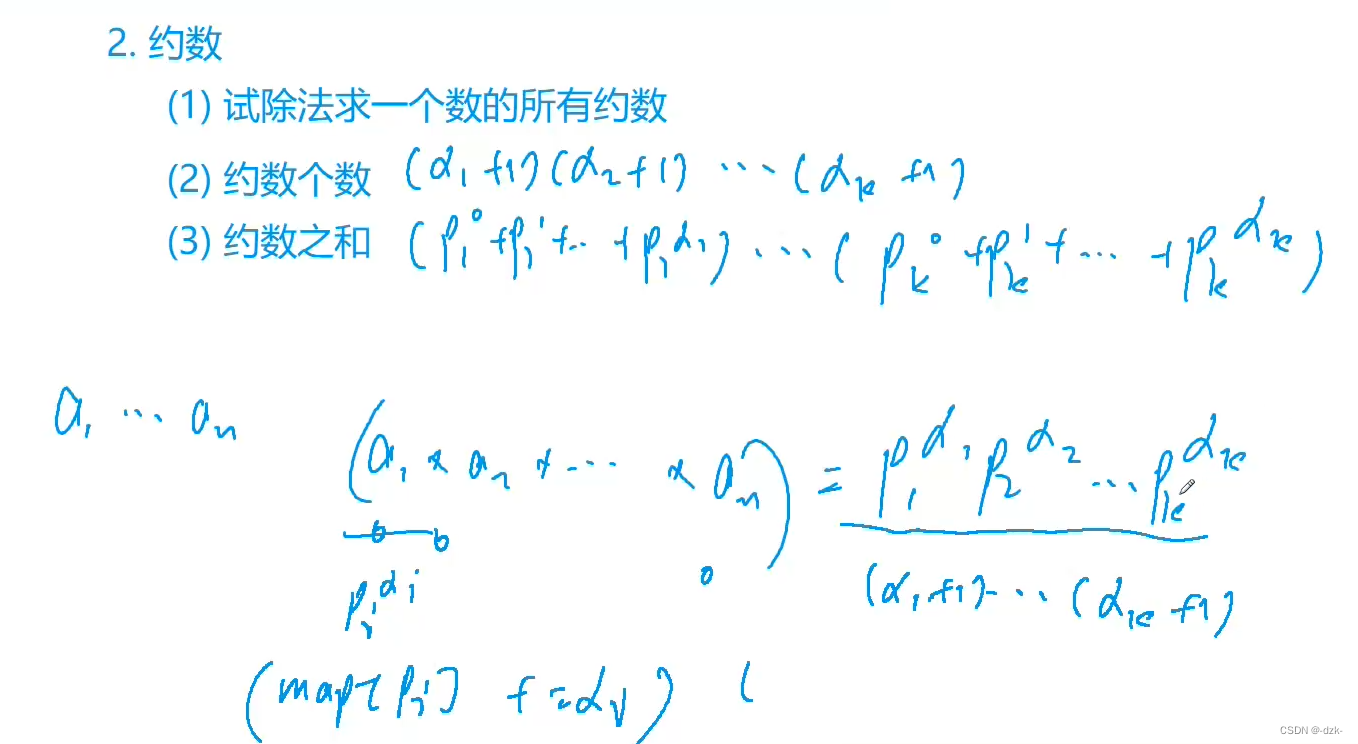 2. 约数
(1) 试除法求一个数的所有约数
(2) 约数个数 (α₁+1)(α₂+1) ⋯ (αₖ+1)
(3) 约数之和 (p₁⁰+p₁¹+⋯+p₁^α₁) ⋯ (pₖ⁰+pₖ¹+⋯+pₖ^αₖ)
a₁ ⋯ aₙ (a₁ × a₂ × ⋯ × aₙ) = p₁^α₁ p₂^α₂ ⋯ pₖ^αₖ
pᵢ^αᵢ (α₁+1)⋯(αₖ+1)
(map[pᵢ] += αᵢ) (
CSDN @-dzk-